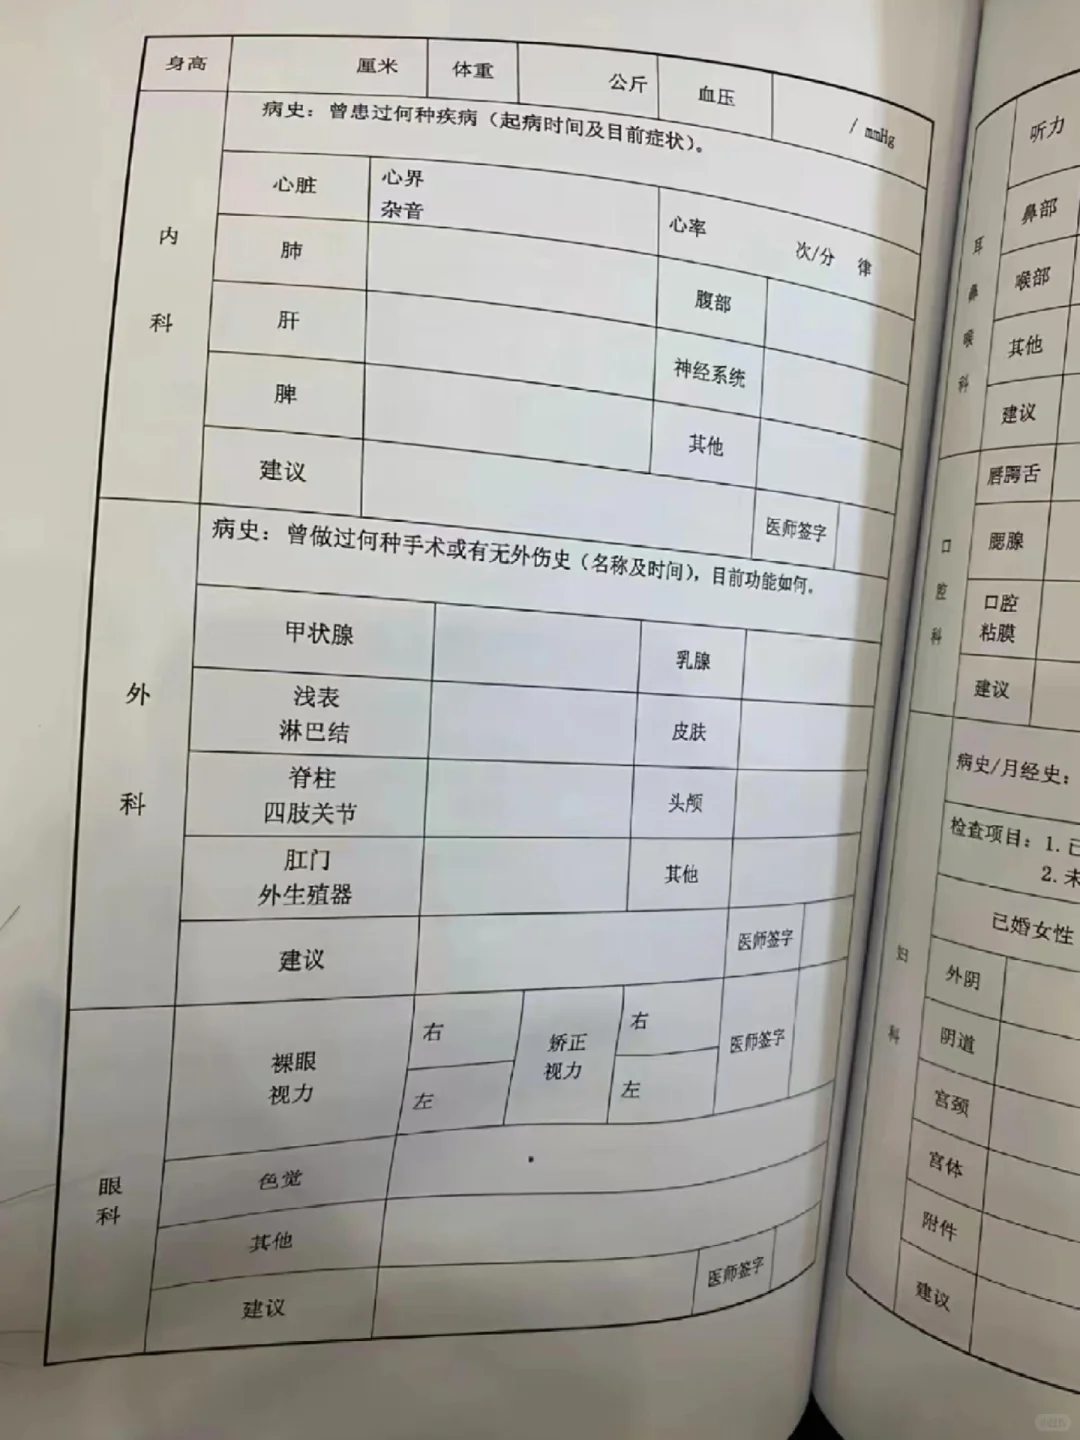 身高 厘米 体重 公斤 血压 / mmHg
内科
病史：曾患过何种疾病（起病时间及目前症状）。
心脏 心界 心率 次/分 律
杂音
肺 腹部
肝 神经系统
脾 其他
建议 医师签字
外科
病史：曾做过何种手术或有无外伤史（名称及时间），目前功能如何。
甲状腺 乳腺
浅表
淋巴结 皮肤
脊柱
四肢关节 头颅
肛门
外生殖器 其他
建议 医师签字
眼科
裸眼
视力 右 左 矫正
视力 右 左 医师签字
色觉
其他
建议 医师签字
耳鼻喉科
听力
鼻部
喉部
其他
建议
口腔科
唇腭舌
腮腺
口腔
粘膜
建议
妇科
病史/月经史：
检查项目：1.已
2.未
已婚女性
外阴
阴道
宫颈
宫体
附件
建议